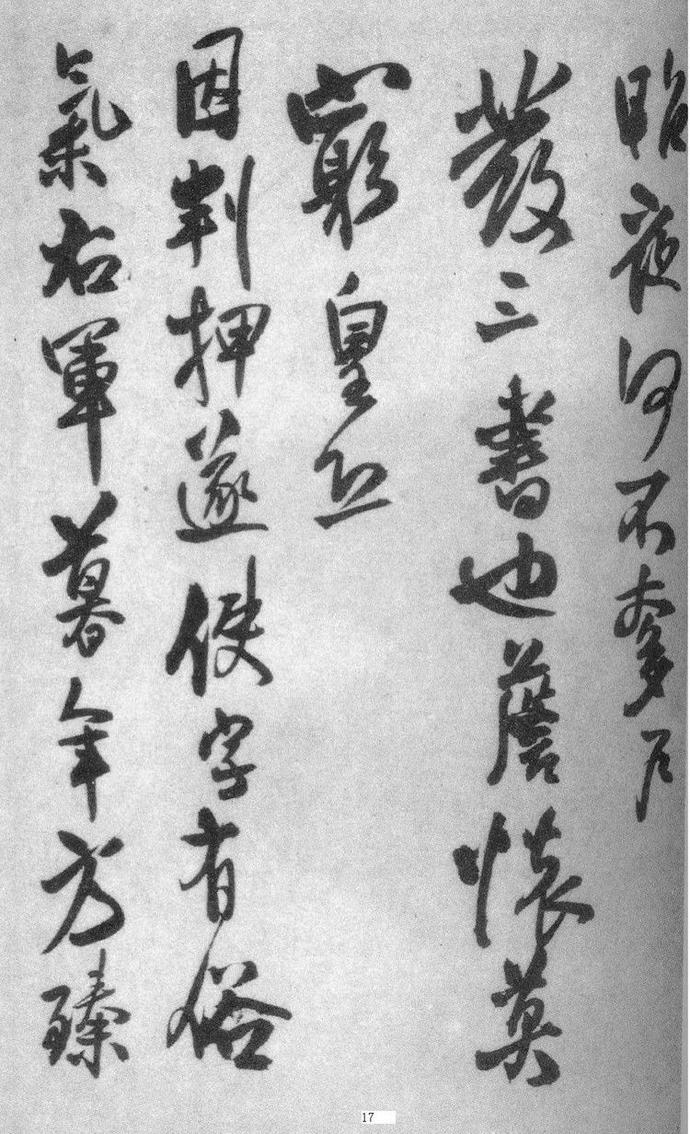 夜何不
發三書也懷莫
窮皇恐
因判押遂使字有俗
氣右軍暮年方臻
17